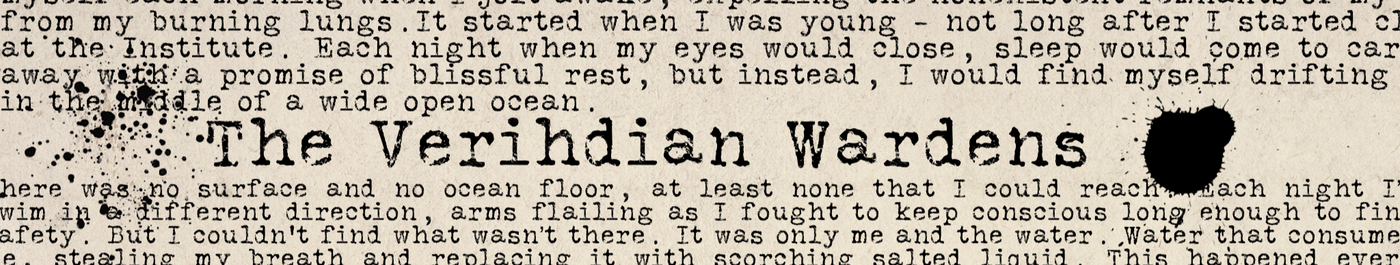 myself each morning when I jolt awake, expelling the nonexistent remnants of my
from my burning lungs.It started when I was young - not long after I started
at the Institute. Each night when my eyes would close, sleep would come to
away with a promise of blissful rest, but instead, I would find myself drifting
in the middle of a wide open ocean.
The Verihdian Wardens
here was no surface and no ocean floor, at least none that I could reach. Each night
wim in a different direction, arms flailing as I fought to keep conscious long enough to
afety. But I couldn't find what wasn't there. It was only me and the water. Water that consume
e, stealing my breath and replacing it with scorching salted liquid. This happened